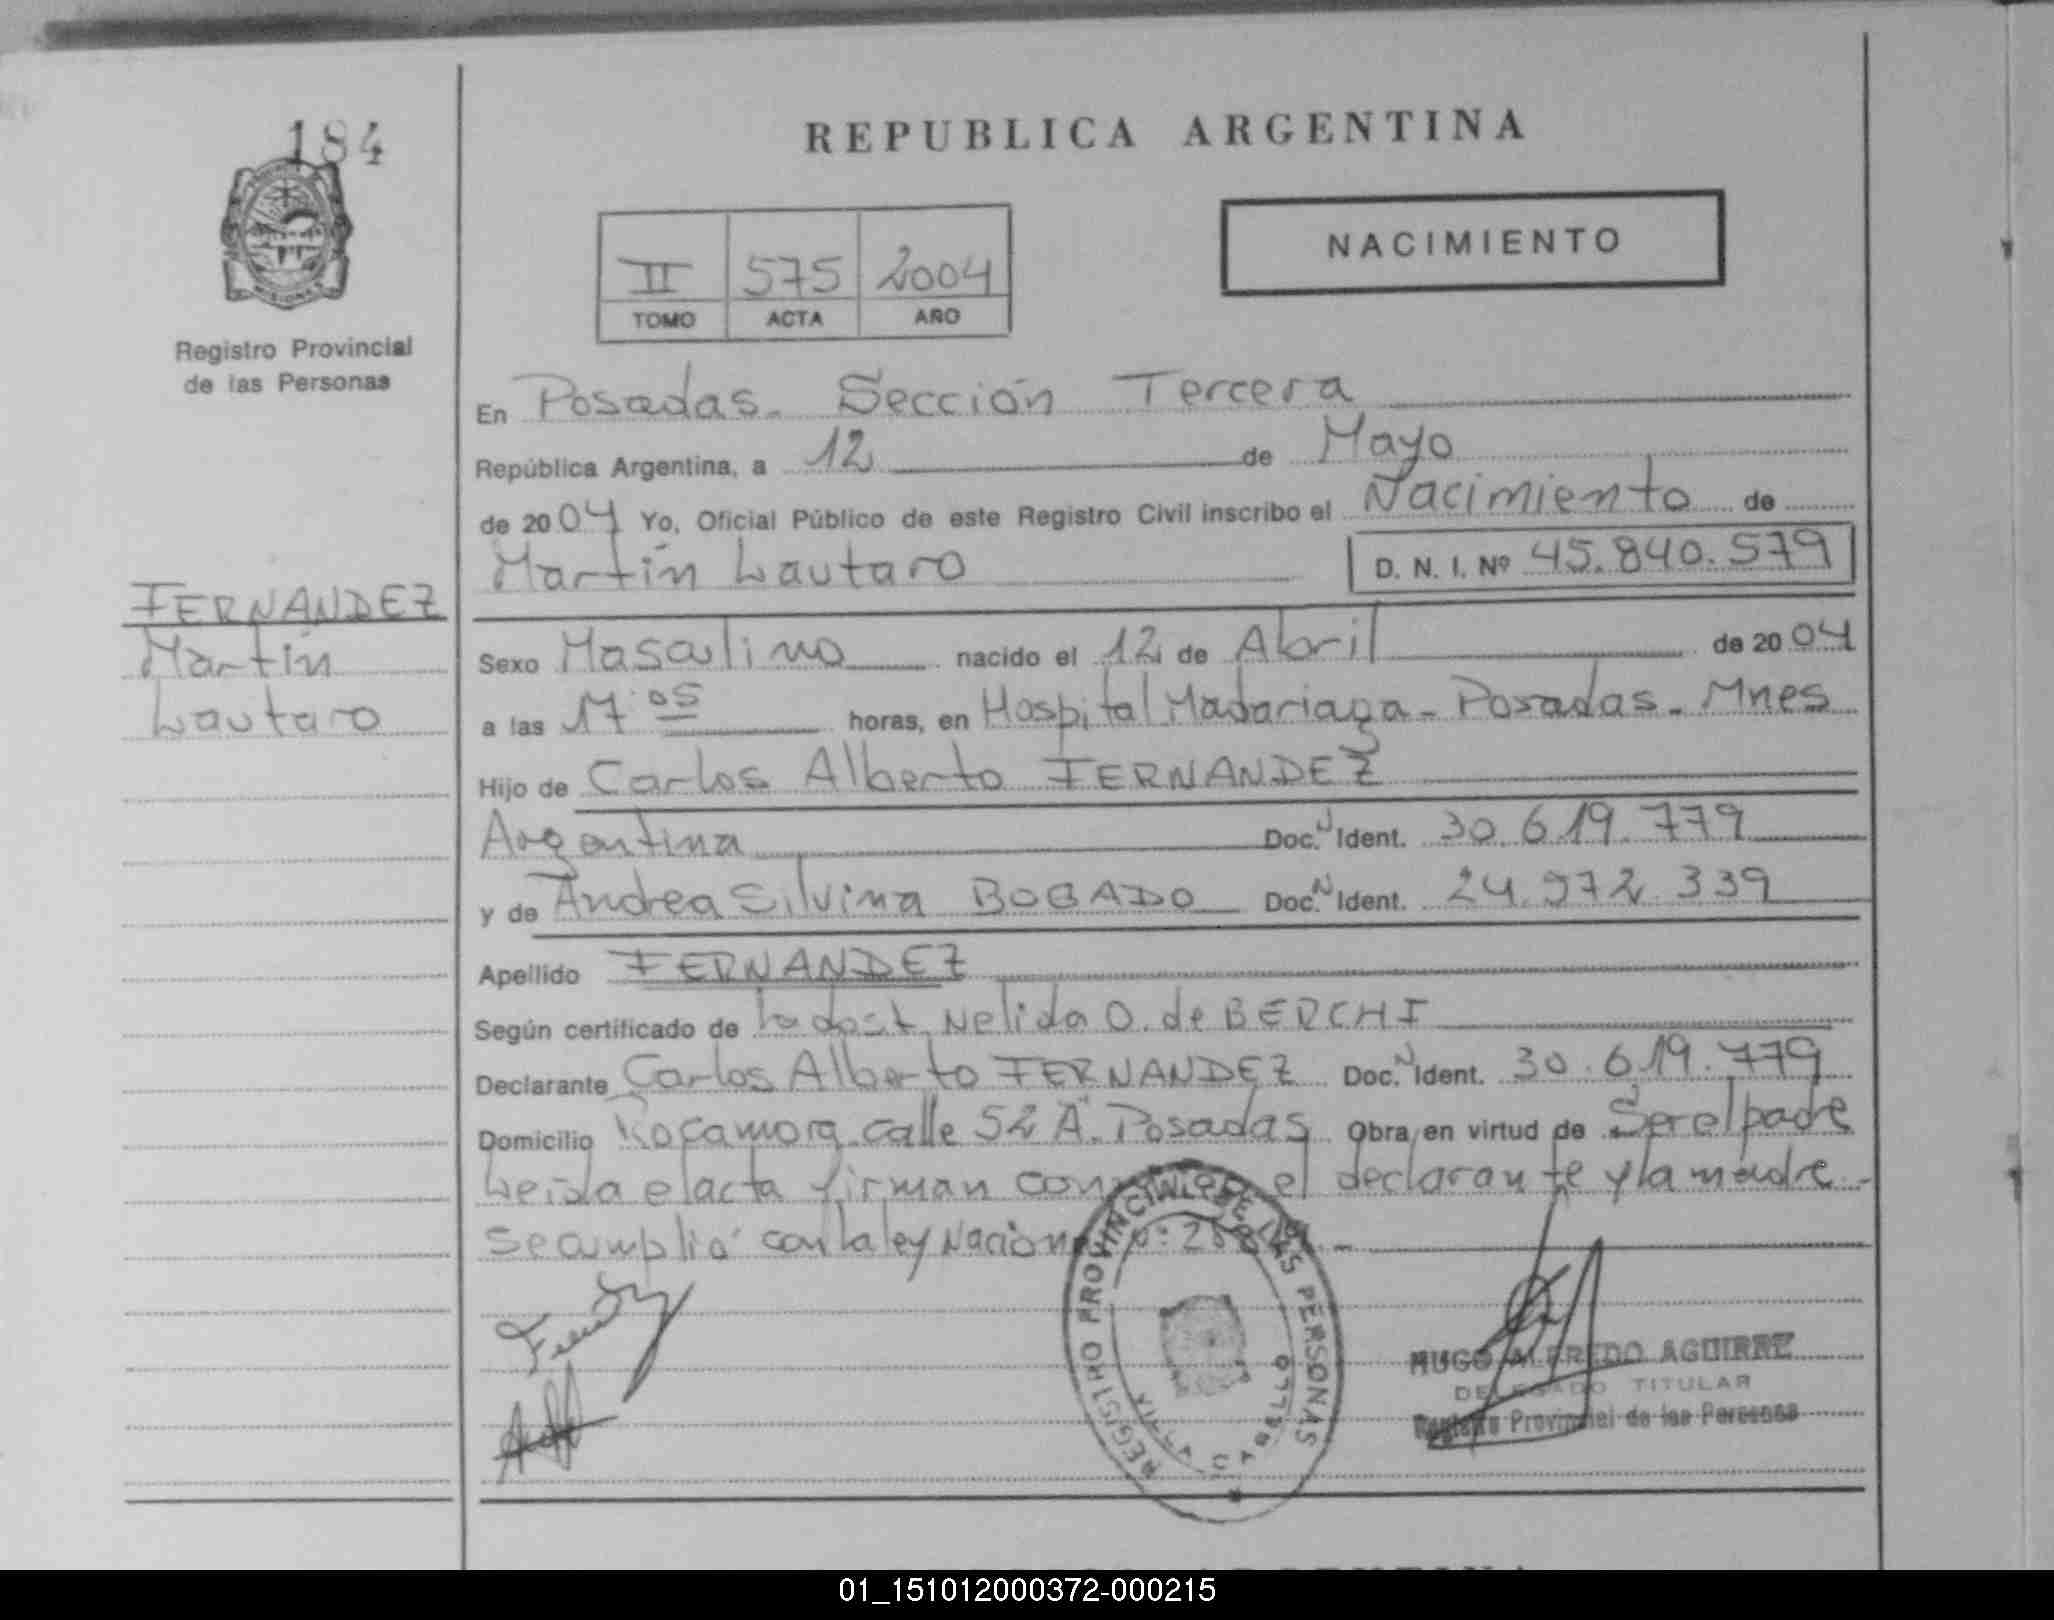 184
REPUBLICA ARGENTINA
NACIMIENTO
II 575 2004
TOMO ACTA AÑO
Registro Provincial
de las Personas
En Posadas. Sección Tercera
República Argentina, a 12 de Mayo
de 2004 Yo, Oficial Público de este Registro Civil inscribo el Nacimiento de
Martín Lautaro D. N. I. Nº 45.840.579
FERNANDEZ
Martín
Lautaro
Sexo Masculino nacido el 12 de Abril de 2004
a las 17 05 horas, en Hospital Madariaga - Posadas - Mnes
Hijo de Carlos Alberto FERNANDEZ
Argentina Doc. N Ident. 30.619.779
y de Andrea Silvina BOGADO Doc. N Ident. 24.972.339
Apellido FERNANDEZ
Según certificado de la obst. Nelida O. de BERCHI
Declarante Carlos Alberto FERNANDEZ Doc. N Ident. 30.619.779
Domicilio Rocamora calle 52 A. Posadas Obra en virtud de Ser el padre
Leida el acta firman el declarante y la madre -
Se cumplió con la ley Nacion
REGISTRO PROVINCIAL DE LAS PERSONAS
VILLA CABELLO
HUGO ALFREDO AGUIRRE
DELEGADO TITULAR
Registro Provincial de las Personas
01_151012000372-000215